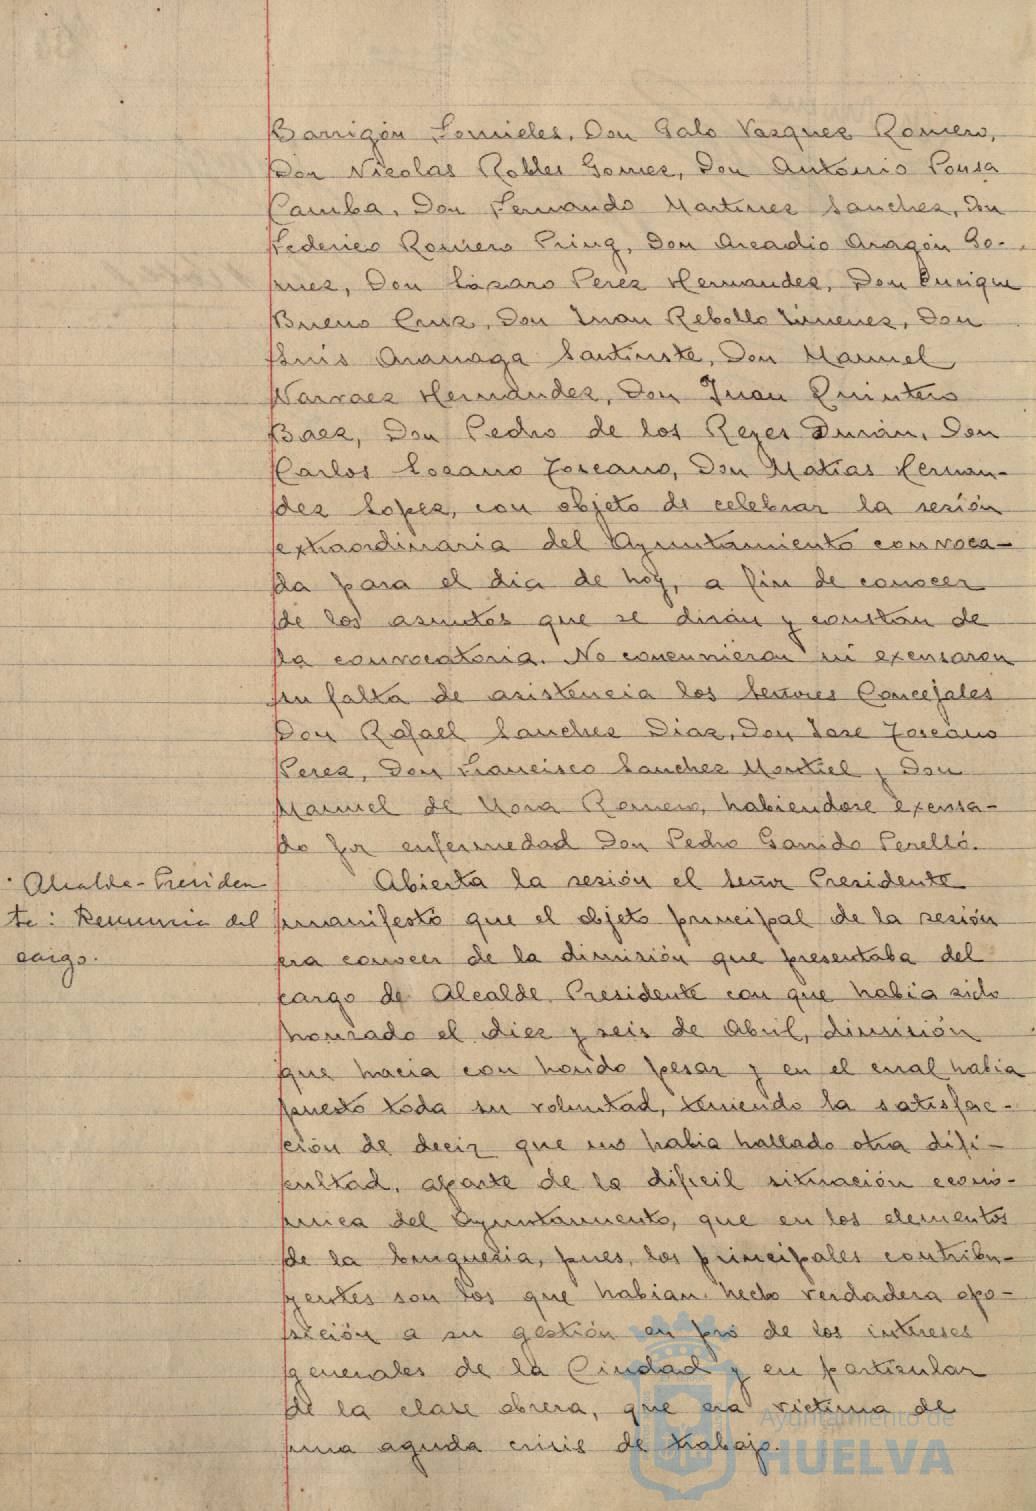 Barrigón Fornieles, Don Galo Vazquez Romero,
Don Nicolas Robles Gomez, Don Antonio Pousa
Camba, Don Fernando Martinez Sanchez, Don
Federico Romero Pring, Don Arcadio Aragón Go-
mez, Don Lázaro Perez Hernandez, Don Enrique
Bueno Cruz, Don Juan Rebollo Jimenez, Don
Luis Aranaga Santiuste, Don Manuel
Narvaez Hernández, Don Juan Quintero
Baez, Don Pedro de los Reyes Durán, Don
Carlos Lozano Toscano, Don Matías Hernan-
dez Lopez, con objeto de celebrar la sesión
extraordinaria del Ayuntamiento convoca-
da para el dia de hoy, a fin de conocer
de los asuntos que se dirán y constan de
la convocatoria. No concurrieron ni excusaron
su falta de asistencia los Señores Concejales
Don Rafael Sanchez Diaz, Don Jose Toscano
Perez, Don Francisco Sanchez Montiel y Don
Manuel de Mora Romero, habiendose excusa-
do por enfermedad Don Pedro Garrido Perelló.
Alcalde-Presiden
te: Renuncia del
cargo.
Abierta la sesión el Señor Presidente
manifestó que el objeto principal de la sesión
era conocer de la dimisión que presentaba del
cargo de Alcalde Presidente con que habia sido
honrado el diez y seis de Abril, dimisión
que hacia con hondo pesar y en el cual habia
puesto toda su voluntad, teniendo la satisfac-
ción de decir que no habia hallado otra difi-
cultad, aparte de la dificil situación econó-
mica del Ayuntamiento, que en los elementos
de la burguesia, pues, los principales contribu-
yentes son los que habian hecho verdadera opo-
sición a su gestión en pró de los intereses
generales de la Ciudad y en particular
de la clase obrera, que era victima de
una aguda crisis de trabajo.
Ayuntamiento de
HUELVA